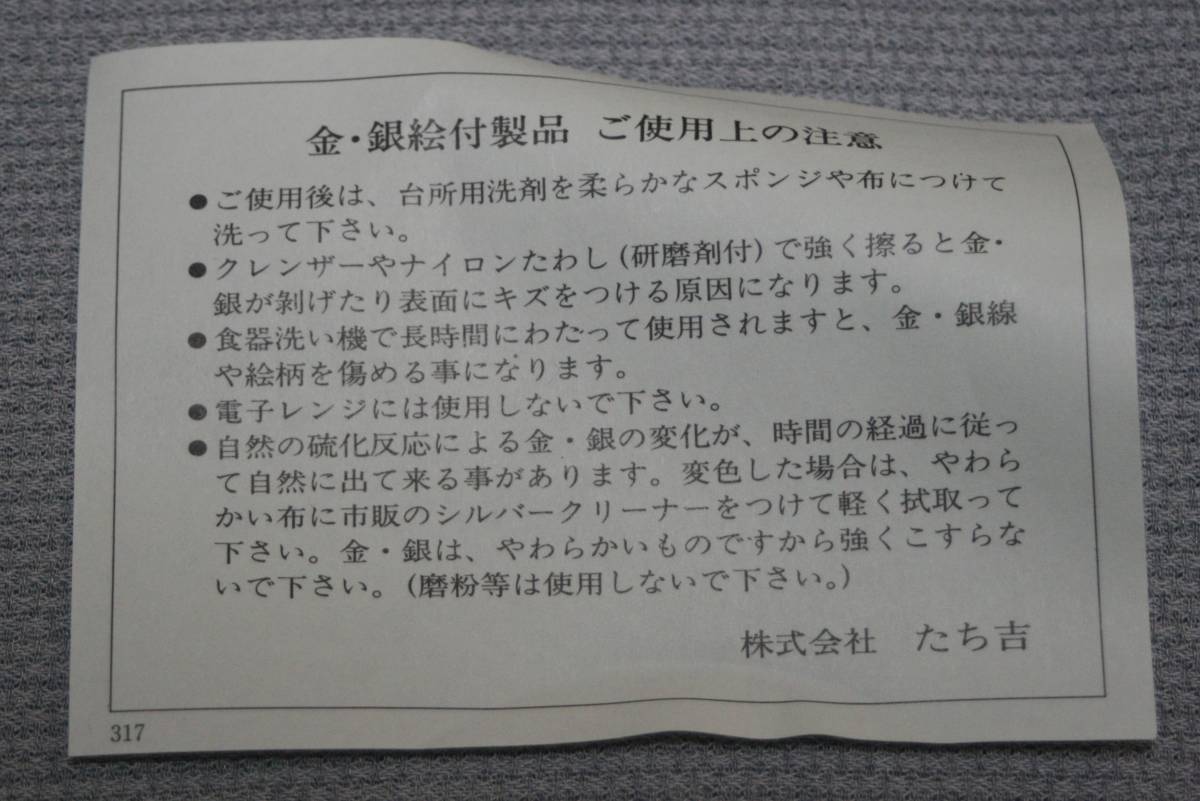 金・銀絵付製品 ご使用上の注意
●ご使用後は、台所用洗剤を柔らかなスポンジや布につけて
洗って下さい。
●クレンザーやナイロンたわし(研磨剤付)で強く擦ると金・
銀が剥げたり表面にキズをつける原因になります。
●食器洗い機で長時間にわたって使用されますと、金・銀線
や絵柄を傷める事になります。
●電子レンジには使用しないで下さい。
●自然の硫化反応による金・銀の変化が、時間の経過に従っ
て自然に出て来る事があります。変色した場合は、やわら
かい布に市販のシルバークリーナーをつけて軽く拭取って
下さい。金・銀は、やわらかいものですから強くこすらな
いで下さい。(磨粉等は使用しないで下さい。)
株式会社 たち吉
317